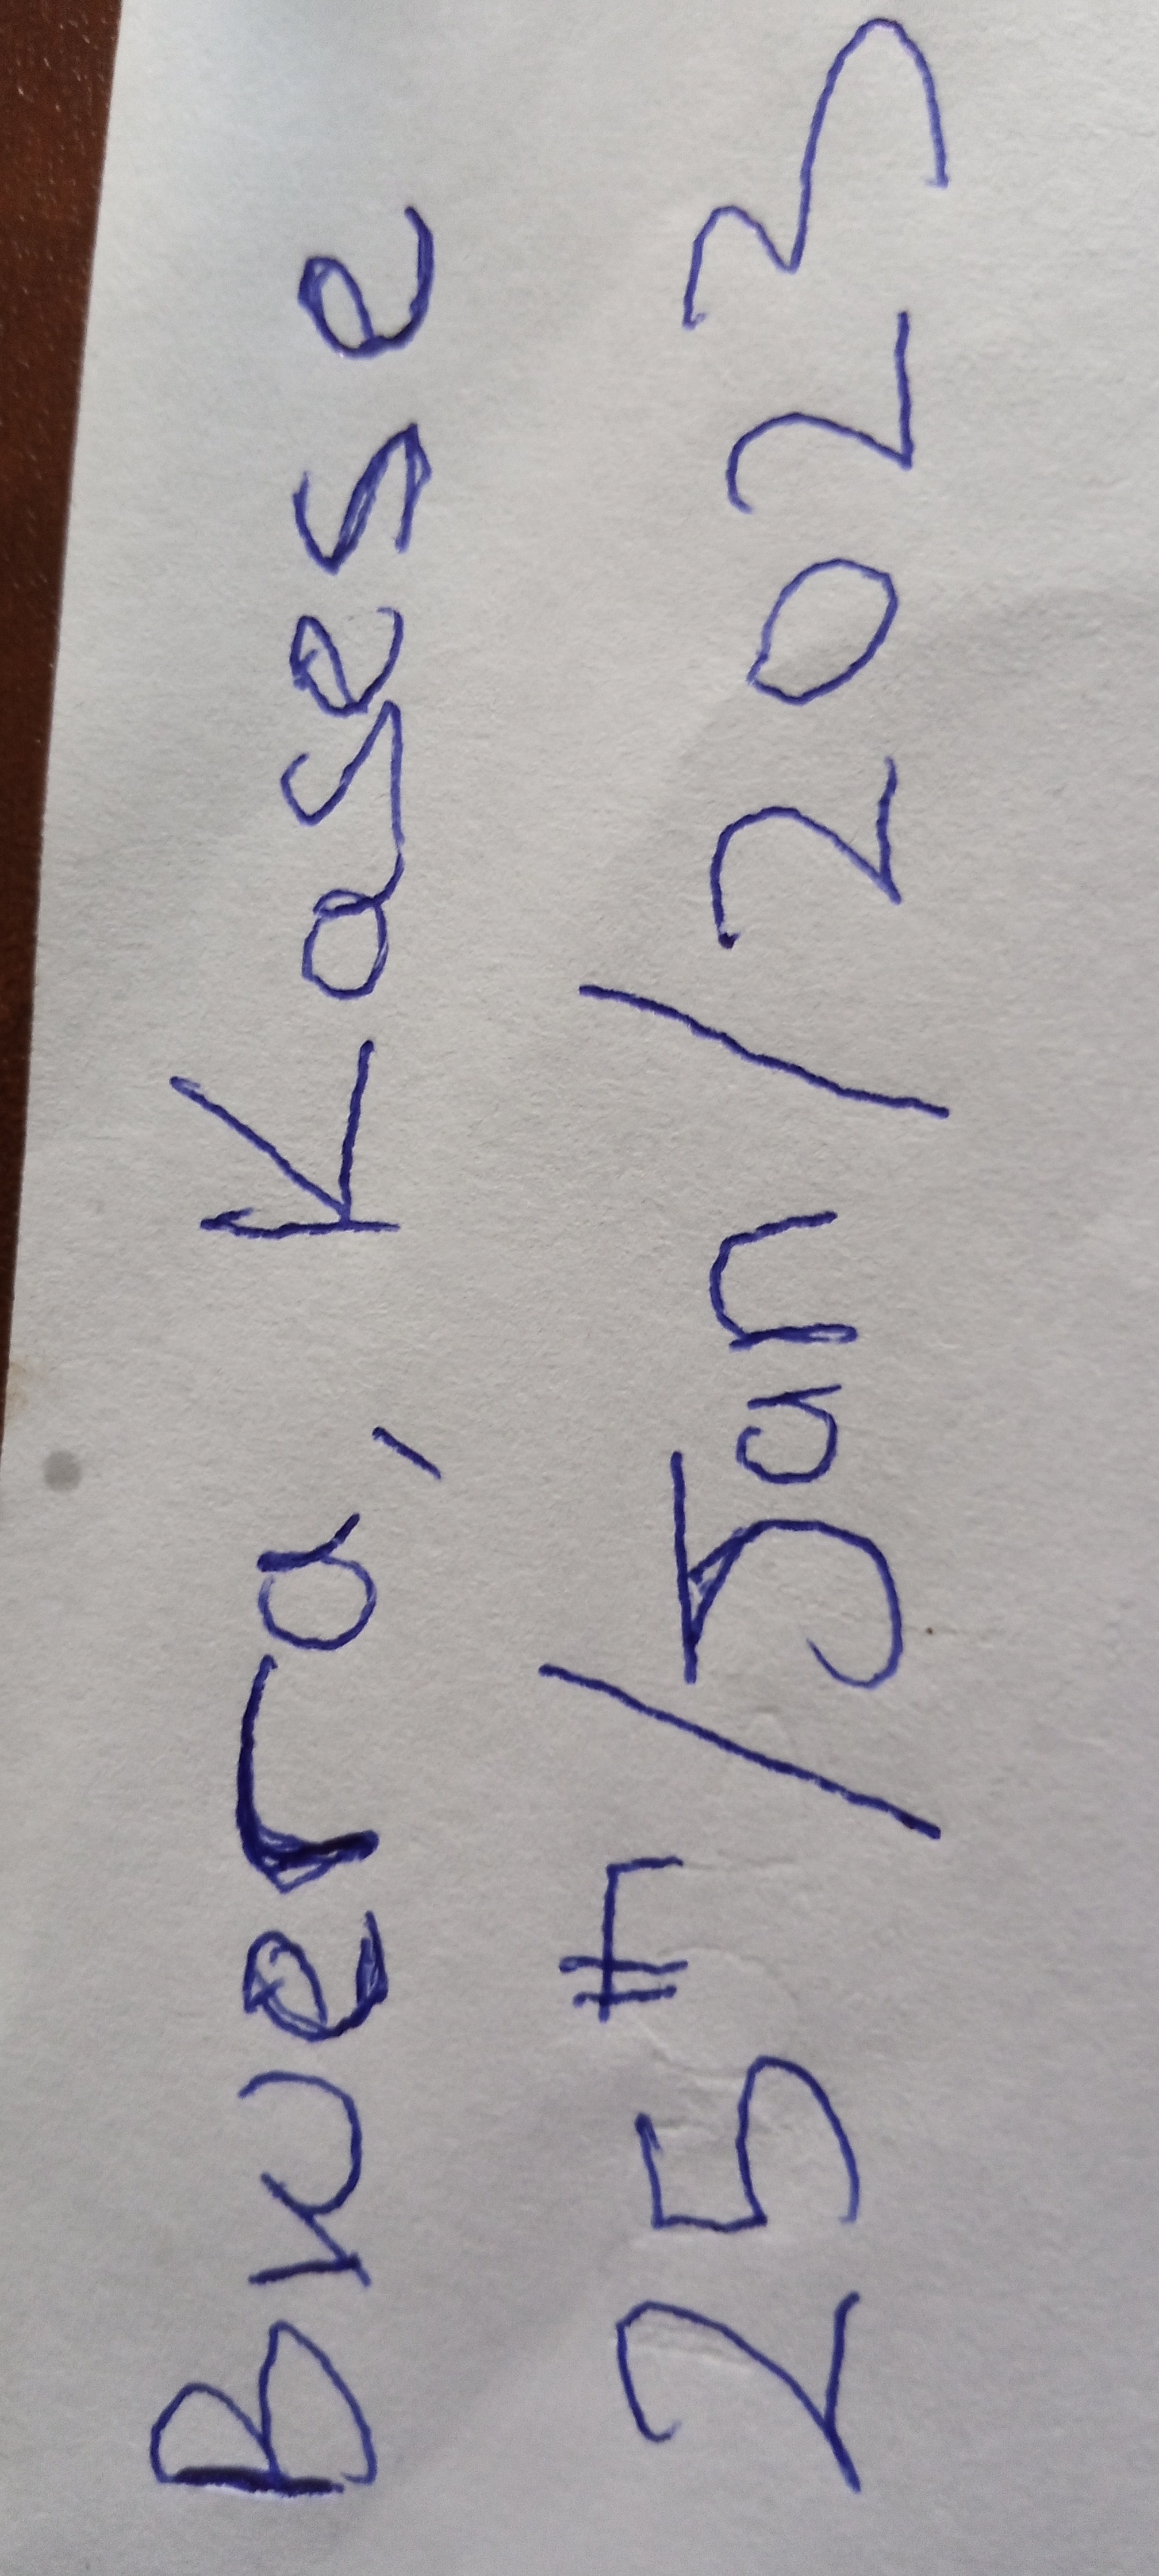 Bwera, Kasese
25th/Jan/2023